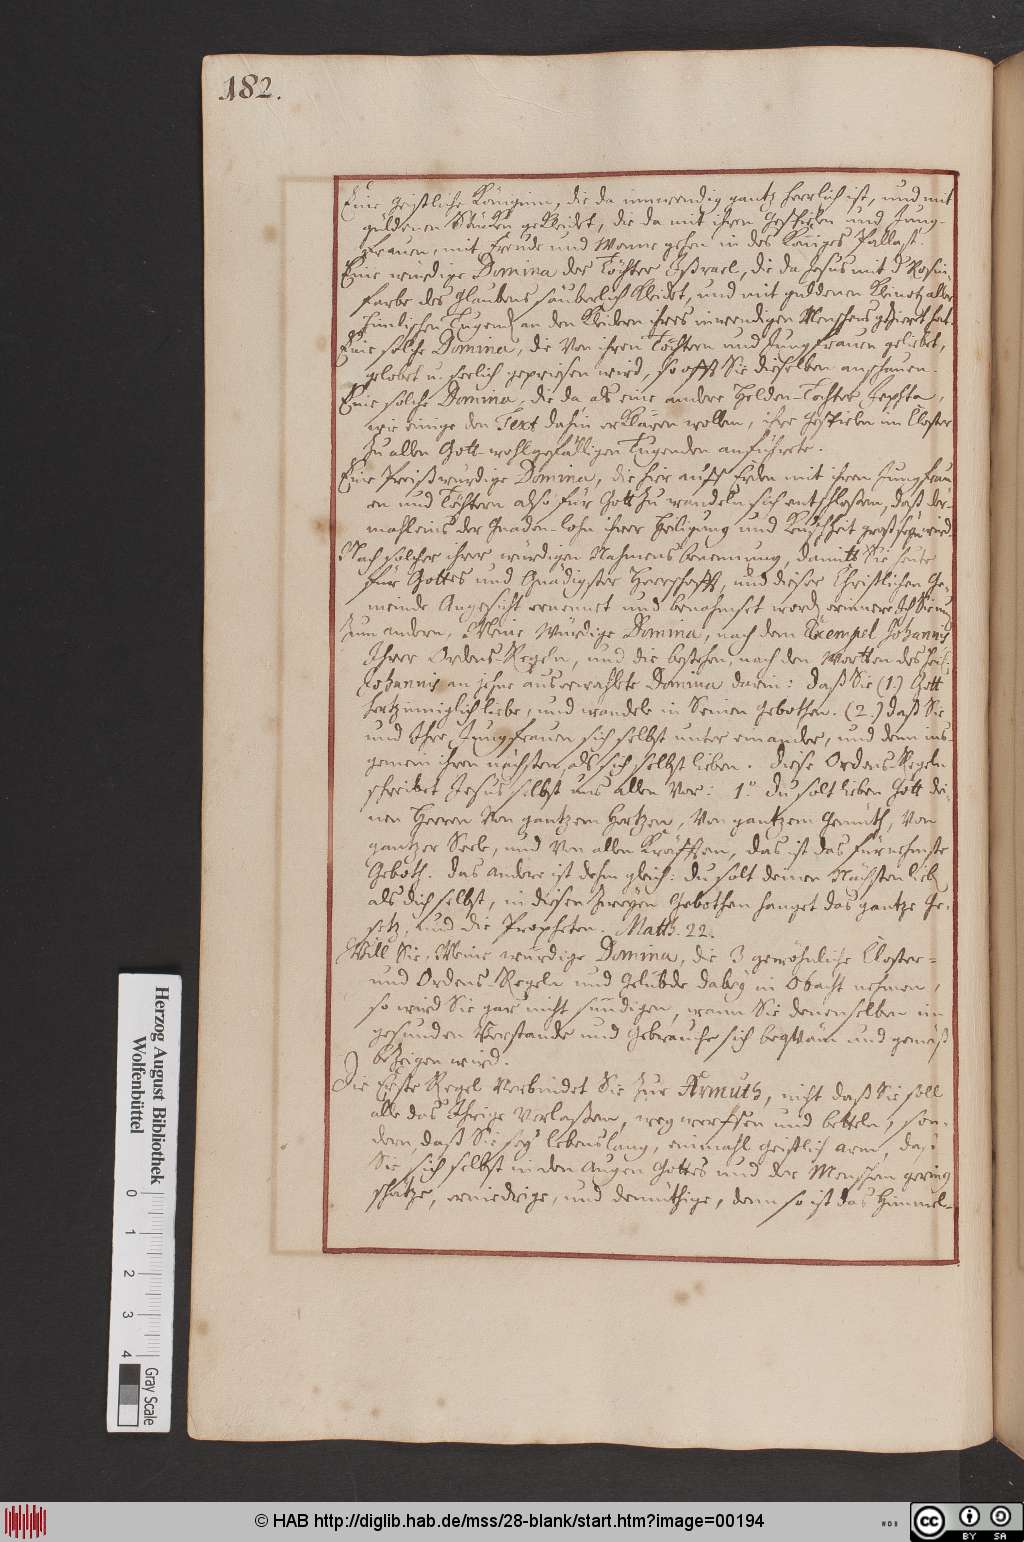 182.
Eine geistliche Königinn, die da innwendig gantz herrlich ist, und mit
güldenen Stücken gekleidet, die da mit ihren Gespielen und Jung-
frauen, mit Freude und Wonne gehen in des Königes Pallast.
Eine würdige Domina der Töchter Israel, die da Jesus mit d Rosin
farbe des Glaubens säuberlich kleidet, und mit guldenen Kleinotz aller
himlischen Tugend an den Kleidern ihres inwendigen Menschens gezieret hat.
Eine solche Domina, die von ihren Töchtern und Jungfrauen geliebet,
gelobet u. seelich gepriesen wird, so offt Sie dieselben anschauen.
Eine solche Domina, die da als eine andere Helden-Tochter Jephta,
wie einige den Text dahin erklären wollen, ihre Gespielen im Closter
zu allen Gott-wohlgefälligen Tugenden anführete.
Eine Preißwürdige Domina, die hier auff Erden mit ihren Jungfrau
en und Töchtern also für Gott zu wandeln sich entschlossen, daß der-
mahleins der Gnaden-Lohn ihrer Heiligung und Keuschheit groß seyn wird.
Nach solcher ihrer würdigen Nahmens benennung, damitt Sie heute
für Gottes und Gnädigster Herrschafft, und dieser Christlichen Ge-
meinde Angesicht ernennet und benahmset word, erinnere Ich Sie nu
zum andern, Meine würdige Domina, nach dem Exempel Johannis
Ihrer Ordens-Regeln, und die bestehen, nach den Wortten des heil.
Johannis an jehne auserwahlte Domina darin: daß Sie (1.) Gott
hertzinniglich liebe, und wandele in Seinen Gebothen. (2.) daß Sie
und Ihre Jungfrauen sich selbst unter einander, und denn ins-
gemein ihren nächsten, als sich selbst lieben. Diese Ordens-Regeln
schreibet Jesus selbst uns allen vor: 1.° du solt lieben Gott dei-
nen Herren von gantzem Hertzen, von gantzem Gemüth, von
gantzer Seele, und von allen Kräfften, das ist das fürnehmste
Geboth. das andere ist dehm gleich: du solt deinen Nächsten lieb
als dich selbst, in diesen zweyen Gebothen hanget das gantze Ge-
setz, und die Propheten. Matth. 22.
Will Sie, Meine würdige Domina, die 3 gewöhnliche Closter-
und Ordens-Regeln und Gelübde dabey in Obacht nehmen,
so wird Sie gar nicht sündigen, wann Sie denenselben im
gesunden Verstande und Gebrauche sich beqväm und gemäß
bezeigen wird.
Die Erste Regel verbindet Sie zur Armuth, nicht daß Sie soll
alle das Ihrige verlaßen, weg werffen und betteln, son-
dern, daß Sie sey lebenslang, einmahl geistlich arm, daß
Sie sich selbst in den Augen Gottes und der Menschen gering
schätze, erniedrige, und demüthige, denn so ist das Himmel-
Herzog August Bibliothek
Wolfenbüttel
0 1 2 3 4
Gray Scale
© HAB http://diglib.hab.de/mss/28-blank/start.htm?image=00194
WDB
CC BY SA